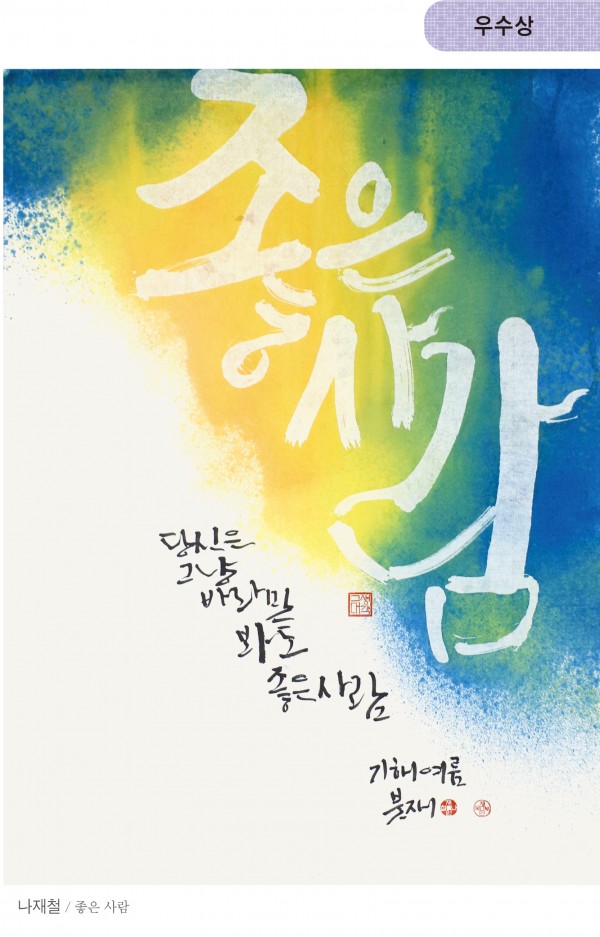 우수상
좋은
사람
당신은
그냥
바라만
봐도
좋은 사람
기해 여름
붓재
나재철 / 좋은 사람